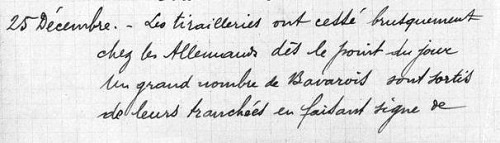 25 Décembre. - Les tirailleries ont cessé brusquement
chez les Allemands dès le point du jour
Un grand nombre de Bavarois sont sortis
de leurs tranchées en faisant signe de